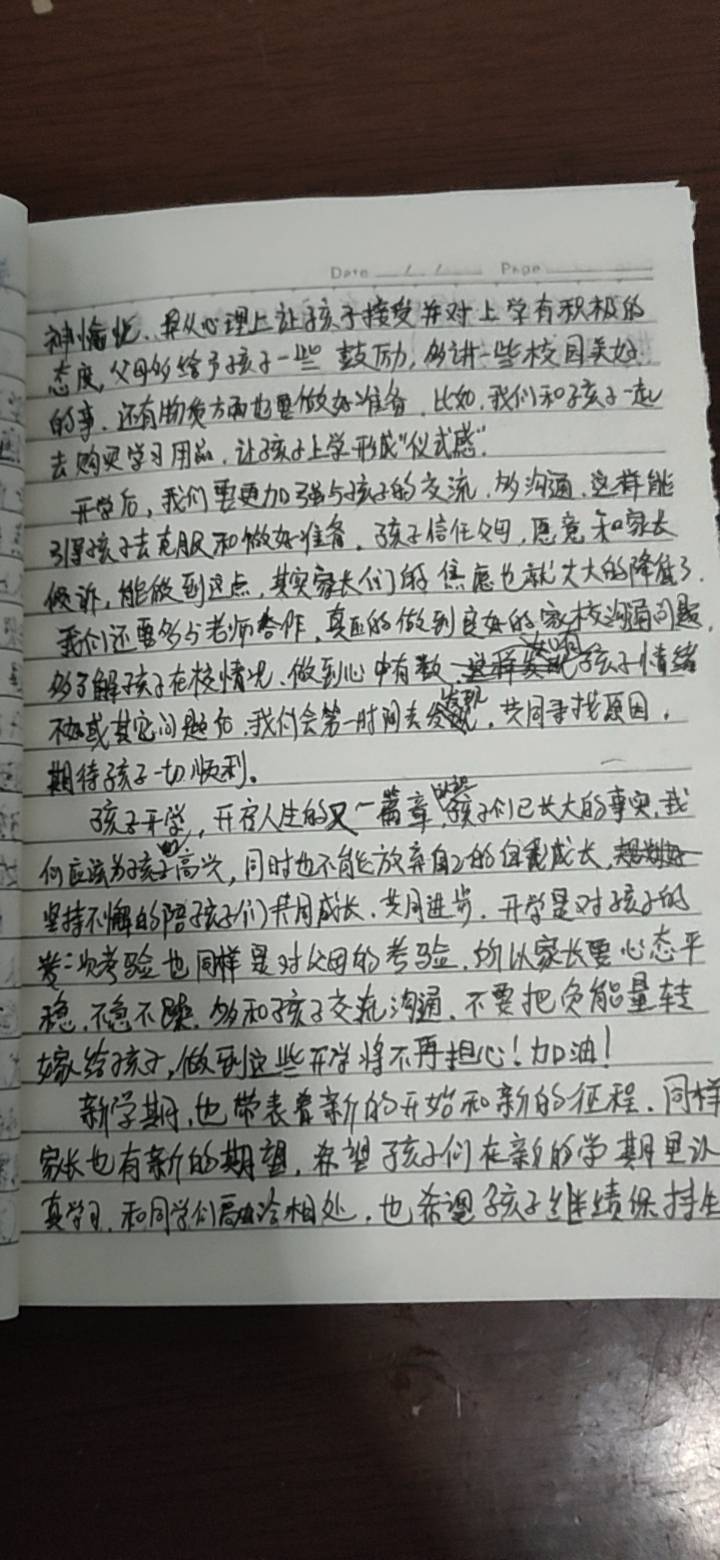 Date / / Page
神愉悦、要从心理上让孩子接受并对上学有积极的
态度,父母多给予孩子一些鼓励,多讲一些校园美好
的事、还有物质方面也要做好准备、比如,我们和孩子一起
去购买学习用品、让孩子上学形成“仪式感”.
开学后,我们要更加强与孩子的交流、多沟通、这样能
引导孩子去克服和做好准备、孩子信任父母,愿意和家长
倾诉,能做到这点,其实家长们的焦虑也就大大的降低了.
我们还要多与老师合作、真正的做到良好的家校沟通问题,
多了解孩子在校情况、做到心中有数、孩子情绪
不好或其它问题后、我们会第一时间去发现,共同寻找原因,
期待孩子一切顺利。
孩子开学,开启人生的又一篇章,孩子们已长大的事实,我
们应该为孩子高兴,同时也不能放弃自己的自我成长,
坚持不懈的陪孩子们共同成长、共同进步、开学是对孩子的
考验也同样是对父母的考验、所以家长要心态平
稳、不急不躁、多和孩子交流沟通、不要把负能量转
嫁给孩子,做到这些开学将不再担心!加油!
新学期,也带表着新的开始和新的征程、同样
家长也有新的期望,希望孩子们在新的学期里认
真学习、和同学们融洽相处、也希望孩子继续保持生